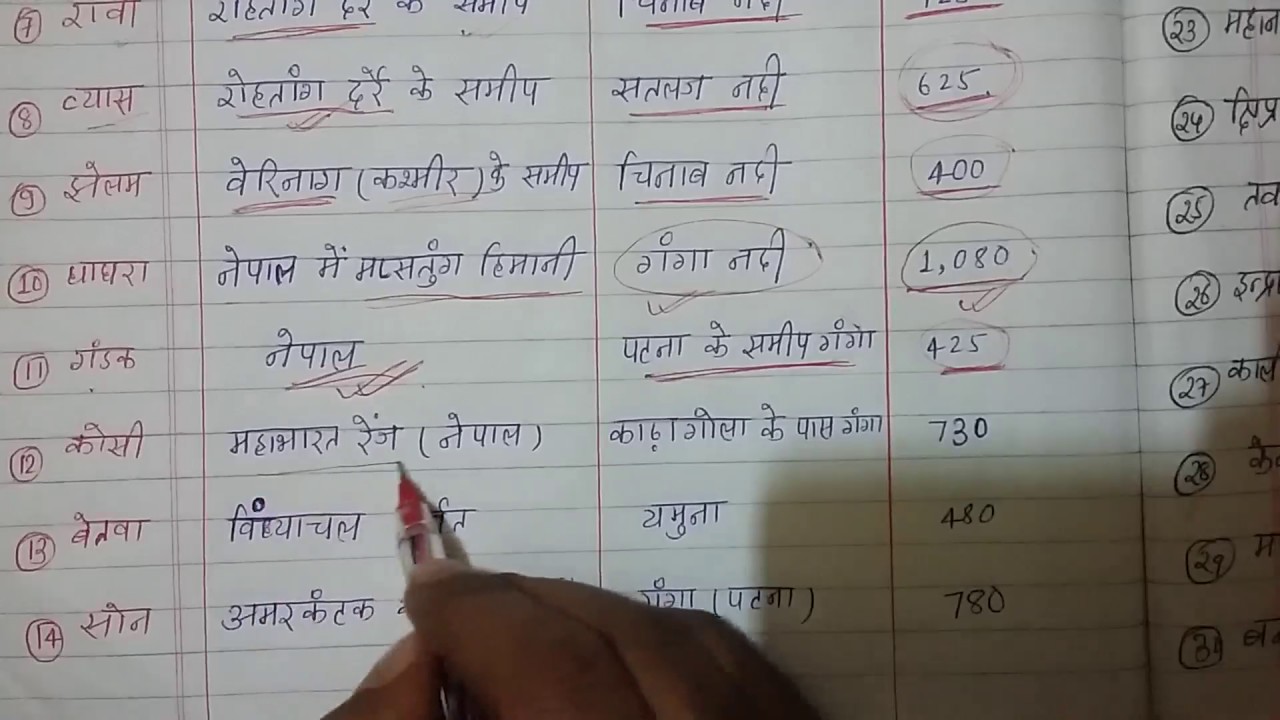 ⑦ रावी रोहतांग दर्रे के समीप चिनाब नदी
⑧ व्यास रोहतांग दर्रे के समीप सतलज नदी 625
⑨ झेलम वेरिनाग (कश्मीर) के समीप चिनाब नदी 400
⑩ घाघरा नेपाल में मप्सतुंग हिमानी गंगा नदी 1,080
⑪ गंडक नेपाल पटना के समीप गंगा 425
⑫ कोसी महाभारत रेंज (नेपाल) काढ़ागोला के पास गंगा 730
⑬ बेतवा विंध्याचल यमुना 480
⑭ सोन अमरकंटक गंगा (पटना) 780
㉓ महान
㉔ क्षिप्र
㉕ तव
㉖ इन्द्रा
㉗ काल
㉘ के
㉙ म